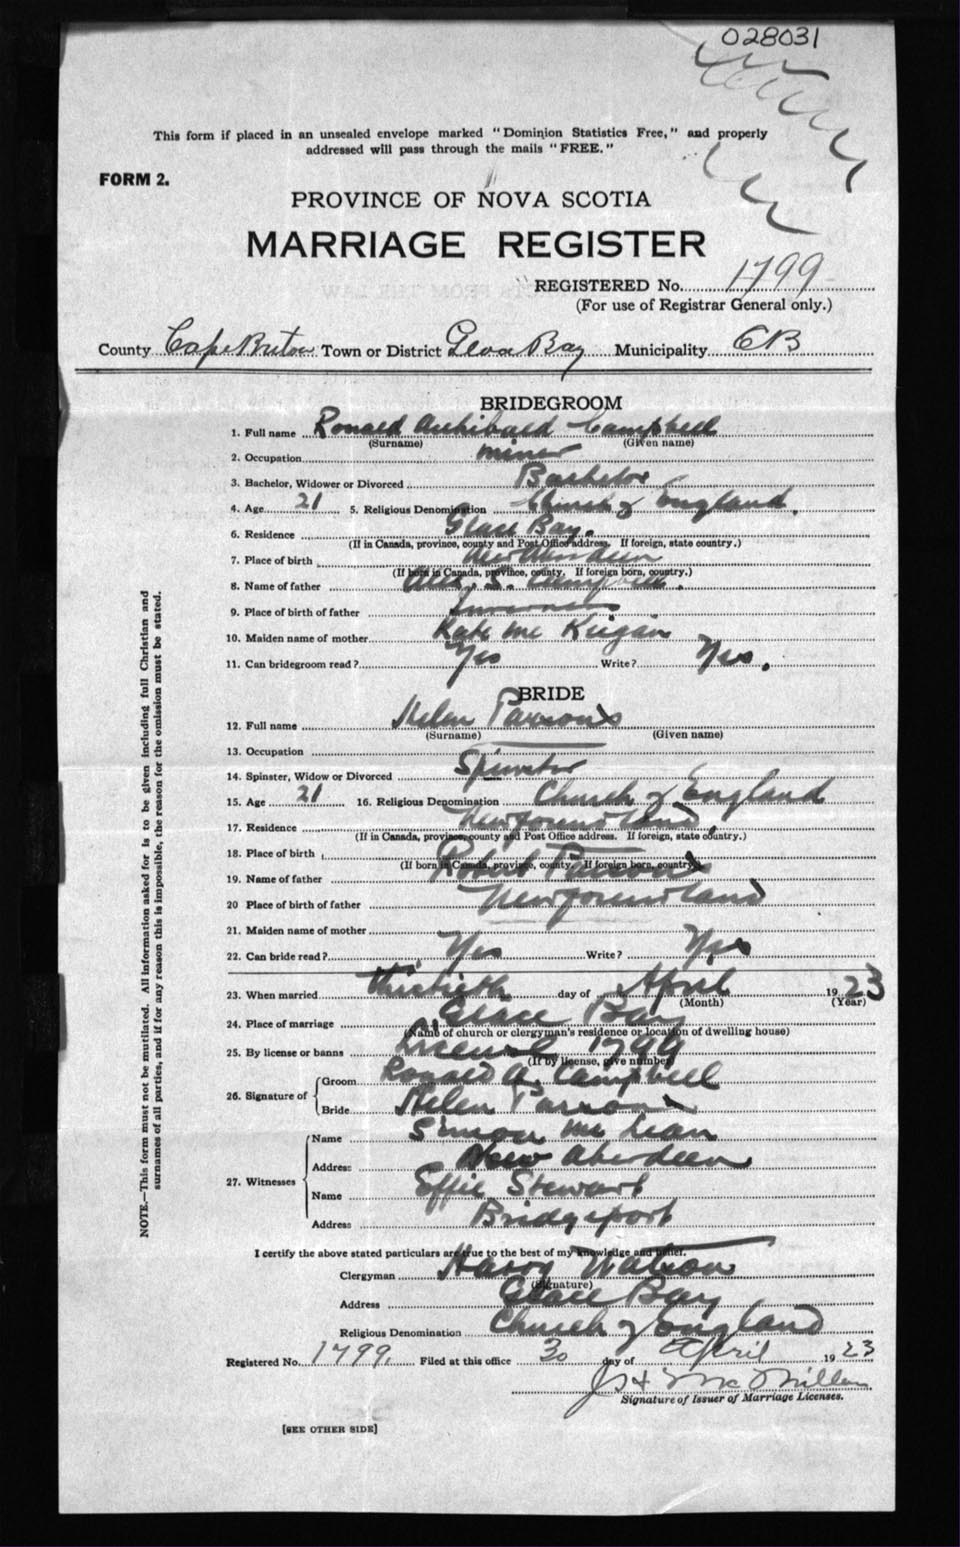 028031
This form if placed in an unsealed envelope marked "Dominion Statistics Free," and properly
addressed will pass through the mails "FREE."
FORM 2.
PROVINCE OF NOVA SCOTIA
MARRIAGE REGISTER
REGISTERED No. 1799
(For use of Registrar General only.)
County Cape Breton Town or District Glace Bay Municipality CB
BRIDEGROOM
1. Full name Ronald Archibald Campbell
(Surname) (Given name)
2. Occupation miner
3. Bachelor, Widower or Divorced Bachelor
4. Age 21 5. Religious Denomination Church of England.
6. Residence Glace Bay.
(If in Canada, province, county and Post Office address. If foreign, state country.)
7. Place of birth New Aberdeen
(If born in Canada, province, county. If foreign born, country.)
8. Name of father S. Campbell.
9. Place of birth of father Inverness
10. Maiden name of mother Kate
11. Can bridegroom read? Yes Write? Yes.
BRIDE
12. Full name Helen Parsons
(Surname) (Given name)
13. Occupation
14. Spinster, Widow or Divorced Spinster
15. Age 21 16. Religious Denomination Church of England
17. Residence Newfoundland.
(If in Canada, province, county and Post Office address. If foreign, state country.)
18. Place of birth
(If born in Canada, province, county. If foreign born, country)
19. Name of father Robert Parsons
20 Place of birth of father Newfoundland
21. Maiden name of mother
22. Can bride read? Yes Write? Yes
23. When married thirtieth day of April 1923
(Month) (Year)
24. Place of marriage Glace Bay
(Name of church or clergyman's residence or location of dwelling house)
25. By license or banns License 1799
(If by license, give number)
26. Signature of Groom Ronald A. Campbell
Bride Helen Parsons
27. Witnesses Name Simon McLean
Address New Aberdeen
Name Effie Stewart
Address Bridgeport
I certify the above stated particulars are true to the best of my knowledge and belief.
Clergyman Harry Watson
(Signature)
Address Glace Bay
Religious Denomination Church of England
Registered No. 1799. Filed at this office 30 day of April 1923
McMillan
Signature of Issuer of Marriage Licenses.
[SEE OTHER SIDE]
NOTE.—This form must not be mutilated. All information asked for is to be given including full Christian and
surnames of all parties, and if for any reason this is impossible, the reason for the omission must be stated.